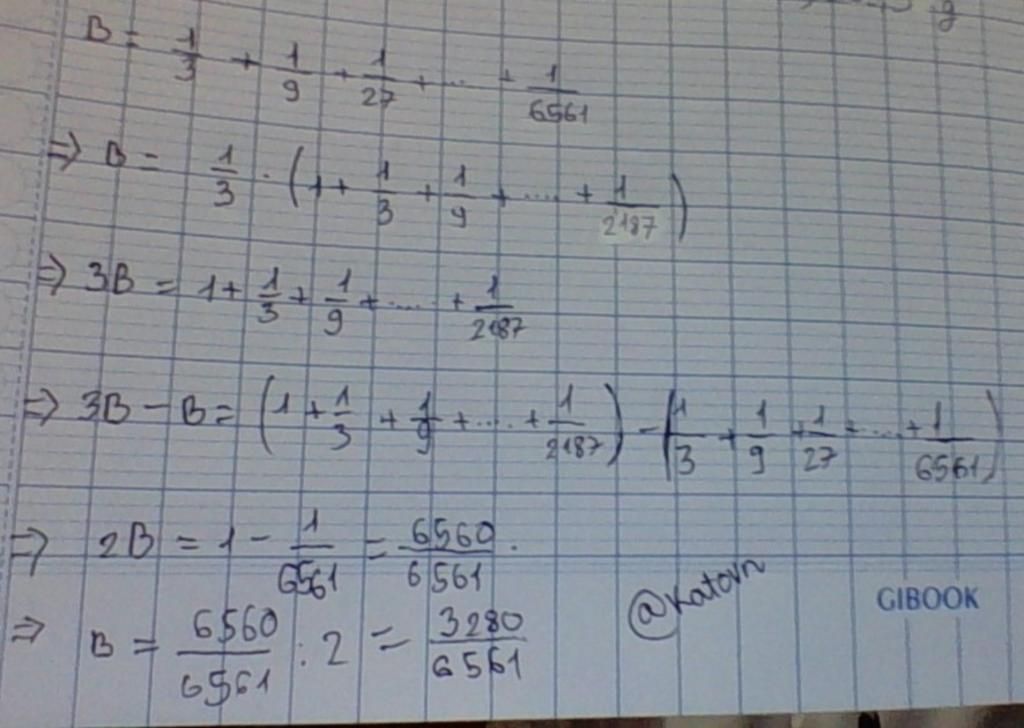 B = 1/3 + 1/9 + 1/27 + .... + 1/6561
=> B = 1/3 . (1 + 1/3 + 1/9 + ..... + 1/2187)
=> 3B = 1 + 1/3 + 1/9 + ..... + 1/2187
=> 3B - B = (1 + 1/3 + 1/9 + .... + 1/2187) - (1/3 + 1/9 + 1/27 + .... + 1/6561)
=> 2B = 1 - 1/6561 = 6560/6561 .
=> B = 6560/6561 : 2 = 3280/6561
@Katovn
GIBOOK